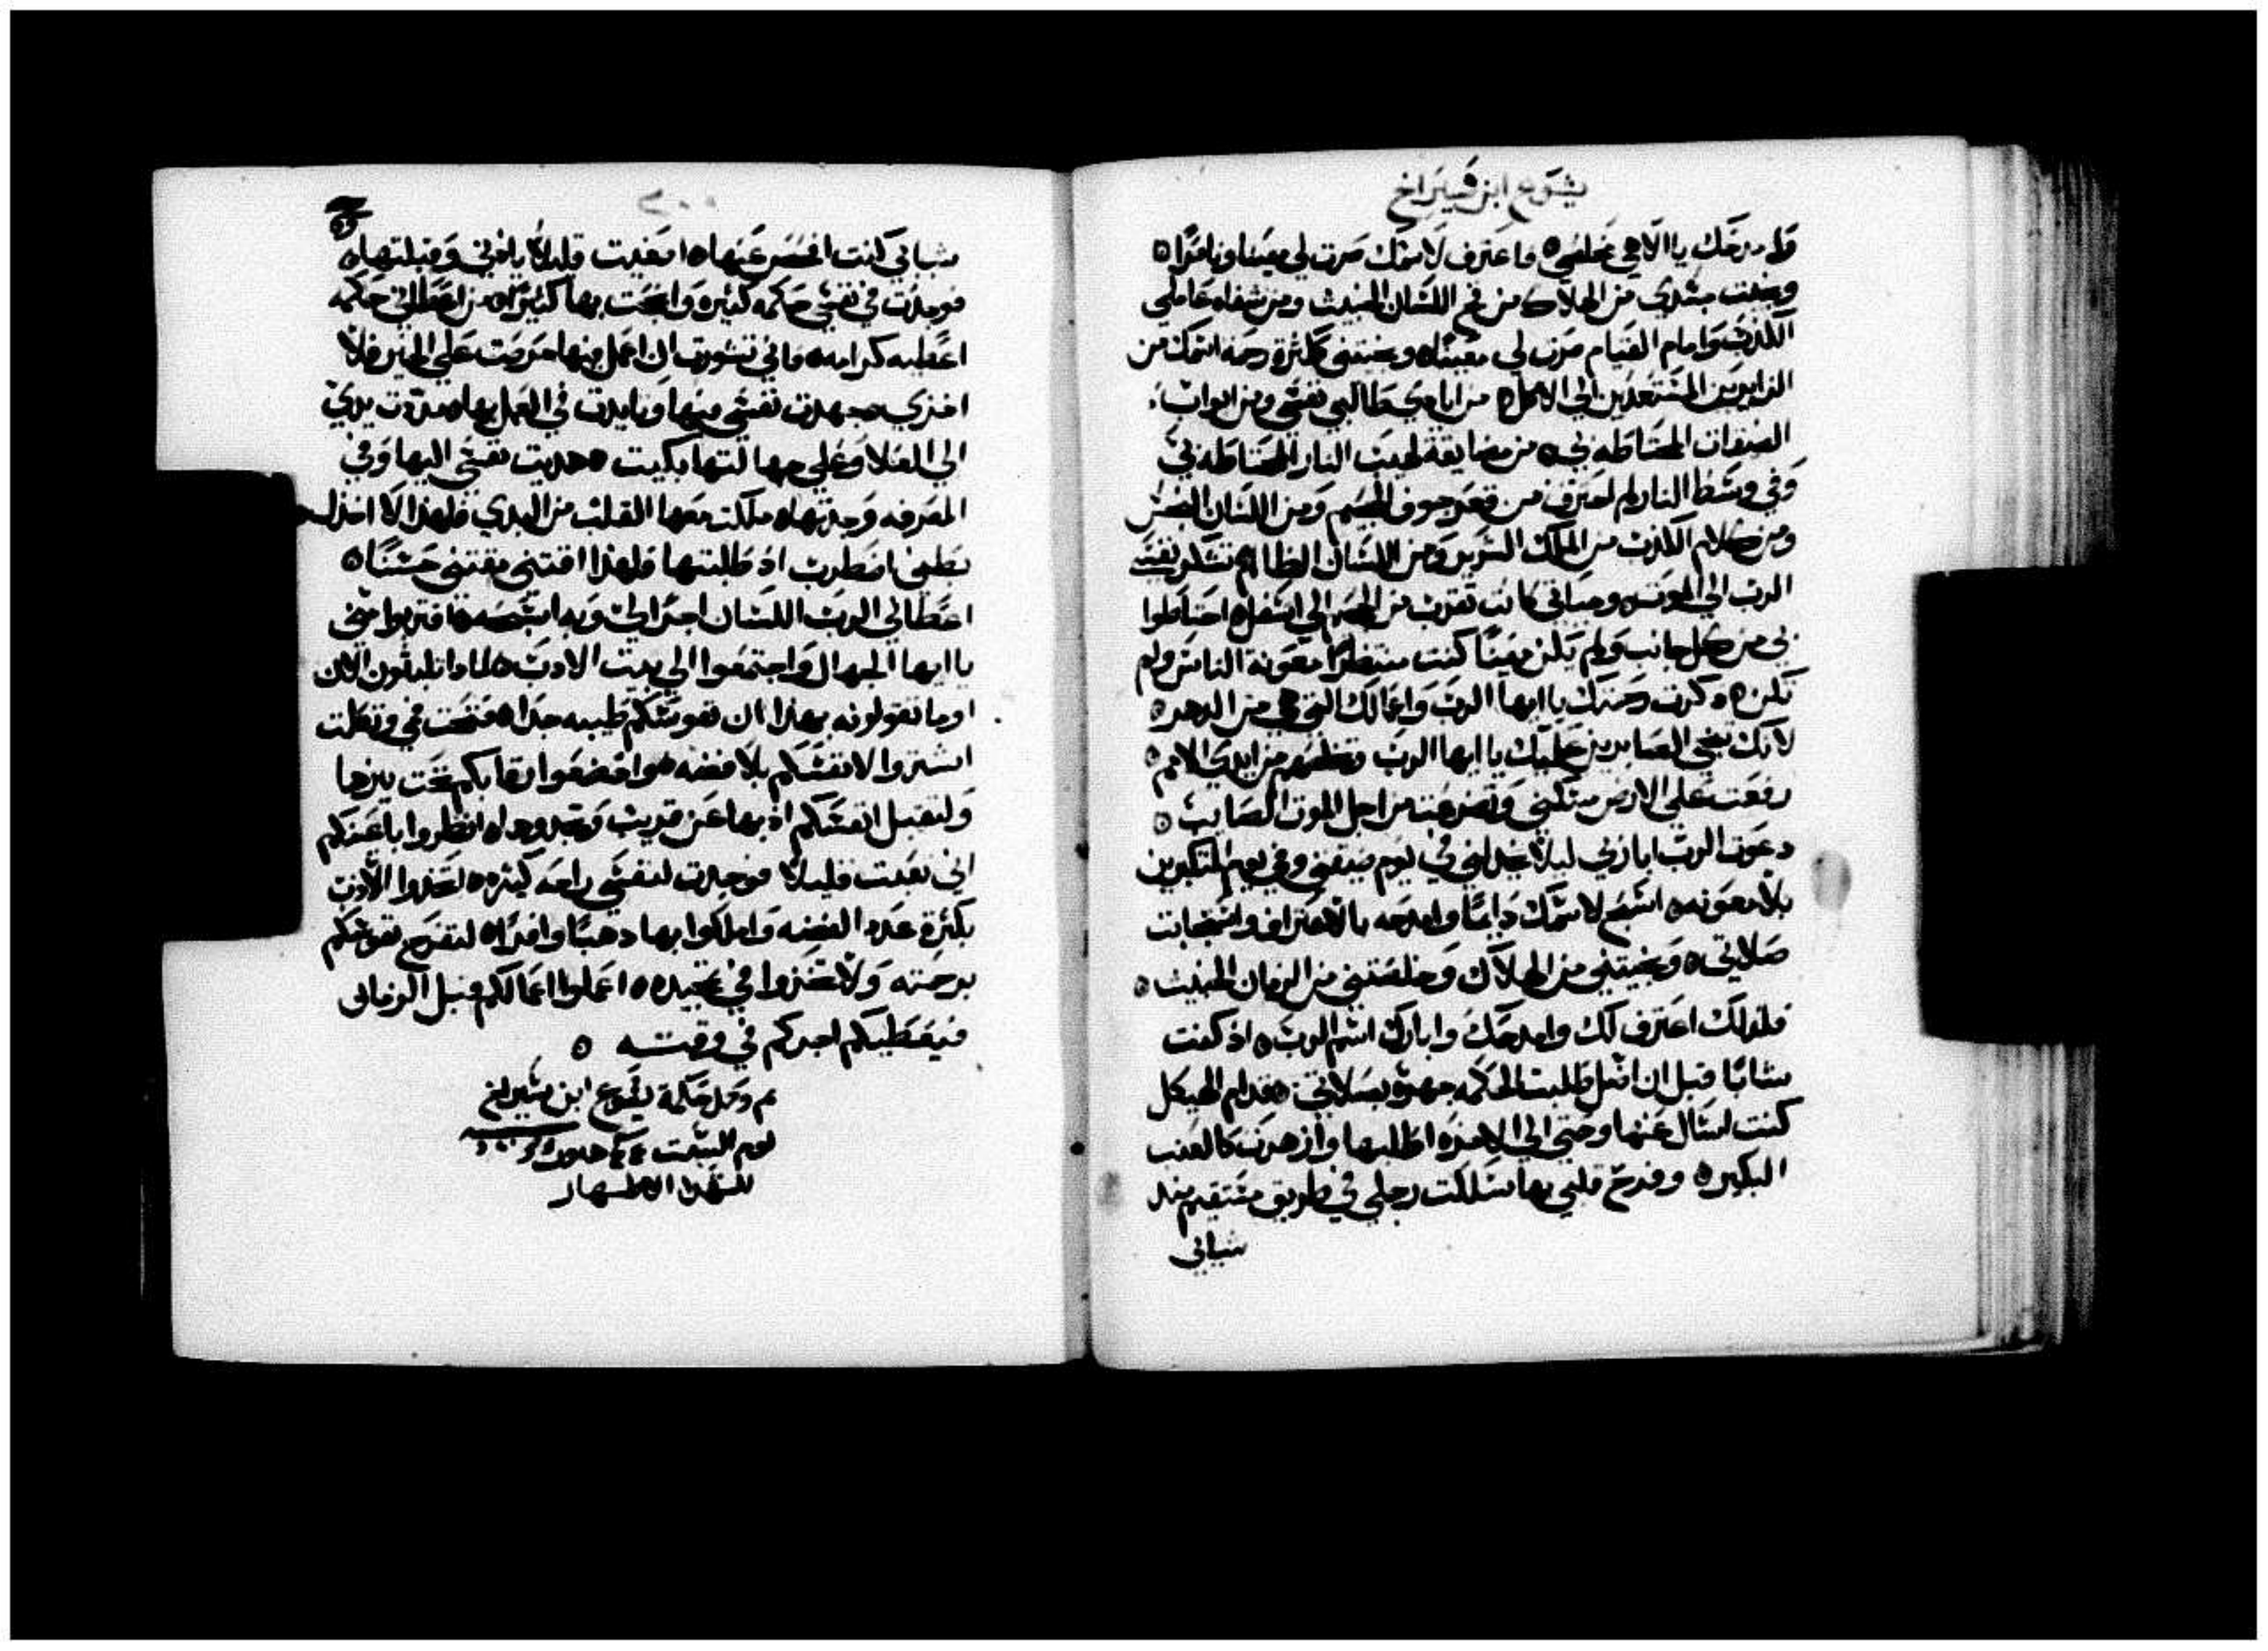 يشوع ابن سيراخ
وامدحك يا الاهي مخلصي ٥ واعترف لاسمك صرت لي معينا وناصرًا ٥
ونجيت جسدي من الهلاك من فخ اللسان الخبيث ومن شفاه عاملي
الكذب وامام القيام صرت لي معينًا ٥ ونجيتني ككثرة رحمة اسمك من
الزايرين المستعدين الي الاكل ٥ من ايادي طالبي نفسي ومن ابواب
الضيقات المحتاطه بي ٥ من مضايقة لهيب النار المحتاطه بي
وفي وسط النار لم احترق من قعر جوف الجحيم ومن اللسان النجس
ومن كلام الكذب من الملك الشرير ومن اللسان الظالم تشكر نفسي
الرب الي الموت ٥ وحياتي كانت تقرب من الجحيم الي اسفل ٥ احتاطوا
بي من كل جانب ولم يكن معينًا كنت منتظرًا معونة الناس ولم
تكن ٥ ذكرت رحمتك يا ايها الرب واعمالك التي هي من الدهر ٥
لانك تنجي الصابرين عليك يا ايها الرب وتخلصهم من ايدي الامم ٥
رفعت علي الارض مسكني وتضرعت من اجل الموت الصايب ٥
دعوت الرب ابا ربي ليلا يخذلني في يوم ضيقتي وفي يوم المتكبرين
بلا معونه ٥ اسبح لاسمك دايمًا وامدحه بالاعتراف واستجابت
صلاتي ٥ ونجيتني من الهلاك وخلصتني من الزمان الخبيث ٥
فلذلك اعترف لك وامدحك وابارك اسم الرب ٥ اذ كنت
شابًا قبل ان اضل طلبت الحكمه جهرة بصلاتي ٥ قدام الهيكل
كنت اسال عنها وحتي الي الاخره اطلبها وازهرت كالعنب
البكيره ٥ وفرح قلبي بها سلكت رجلي في طريق مستقيم منذ
شبابي
٢٠٠
شبابي كنت افحص عنها ٥ اصغيت قليلاً باذني وقبلتها ٥
فوجدت في نفسي حكمه كثيره وانجحت بها كثيرًا ٥ من اعطاني حكمه
اعطيه كرامه ٥ فاني تشورت ان اعمل منها حرصت علي الخير فلا
اخزي ٥ جهدت نفسي منها وتايدت في العمل بها ٥ مددت يدي
الي العلا وعلي جهالتها بكيت ٥ هديت نفسي اليها وفي
المعرفه وجدتها ٥ ملكت معها القلب من البدي فلهذا لا اخذل
بطني اضطرب اذ طلبتها فلهذا اقتني مقتني حسنًا ٥
اعطاني الرب اللسان اجرًا لي وبه اسبحه ٥ اقتربوا مني
يا ايها الجهال واجتمعوا الي بيت الادب ٥ لماذا تلبثون الان
اوما تقولونه بهذا ان نفوسكم طيبه جدًا ٥ فتحت في وتكلت
اشتروا لانفسكم بلا فضه ٥ واخضعوا رقابكم تحت نيرها
ولتقبل انفسكم ادبها عن قريب وتجدوها ٥ انظروا باعينكم
اني تعبت قليلاً فوجدت لنفسي راحه كثيره ٥ اتخذوا الادب
بكثرة عدد الفضه واملكوا بها دهبًا وافرًا ٥ لتفرح نفوسكم
برحمته ولا تخزوا في تمجيده ٥ اعملوا اعمالكم قبل الزمان
فيعطيكم اجركم في وقته ٥
تم وكمل حكمة يشوع ابن سيراخ
يوم السبت